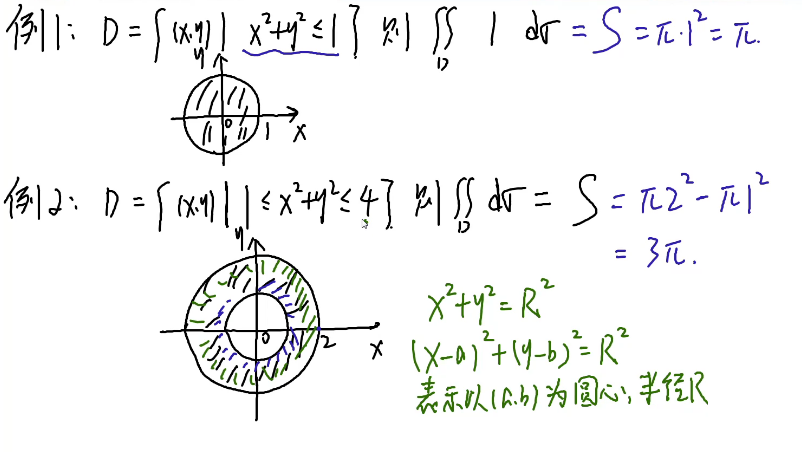 例1: D = {(x,y) | x²+y² ≤ 1} 则 ∬_D 1 dσ = S = π·1² = π.
y
0 1 x
例2: D = {(x,y) | 1 ≤ x²+y² ≤ 4} 则 ∬_D dσ = S = π2² - π1²
= 3π.
y
0 2 x
x²+y² = R²
(x-a)²+(y-b)² = R²
表示以(a,b)为圆心,半径R